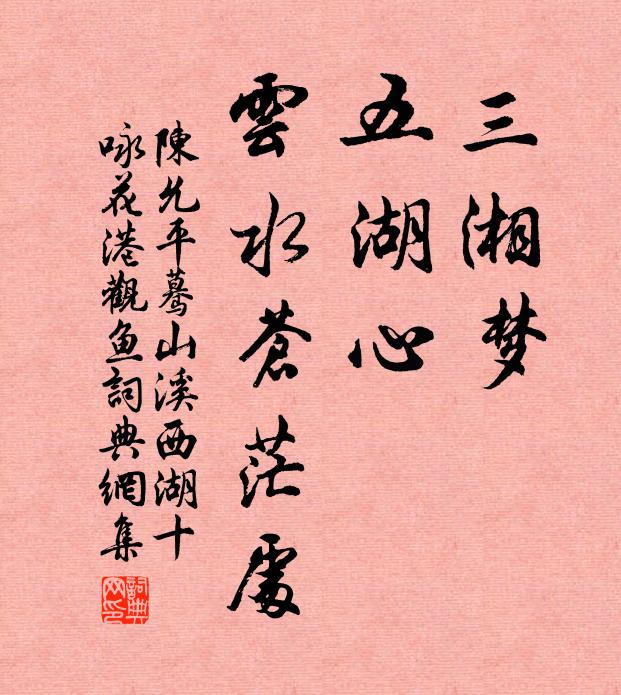 三湘梦
五湖心
雲水蒼茫處
陳允平驀山溪西湖十
咏花港觀鱼詞典網集
詞典网印